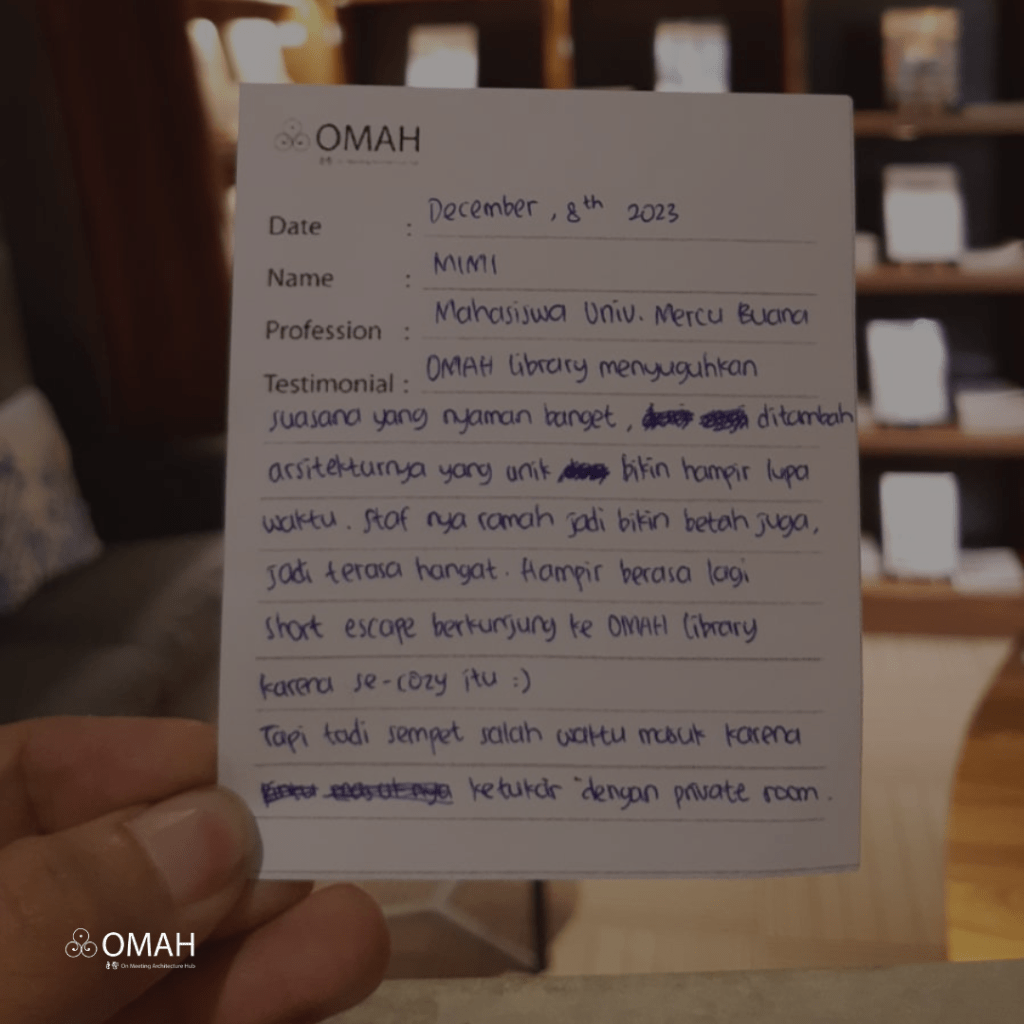 OMAH
Date : December, 8th 2023
Name : MIMI
Profession : Mahasiswa Univ. Mercu Buana
Testimonial : OMAH library menyuguhkan
suasana yang nyaman banget, ditambah
arsitekturnya yang unik bikin hampir lupa
waktu. Staf nya ramah jadi bikin betah juga,
jadi terasa hangat. Hampir berasa lagi
short escape berkunjung ke OMAH library
karena se-cozy itu :)
Tapi tadi sempet salah waktu masuk karena
ketukar dengan private room.
OMAH
On Meeting Architecture Hub